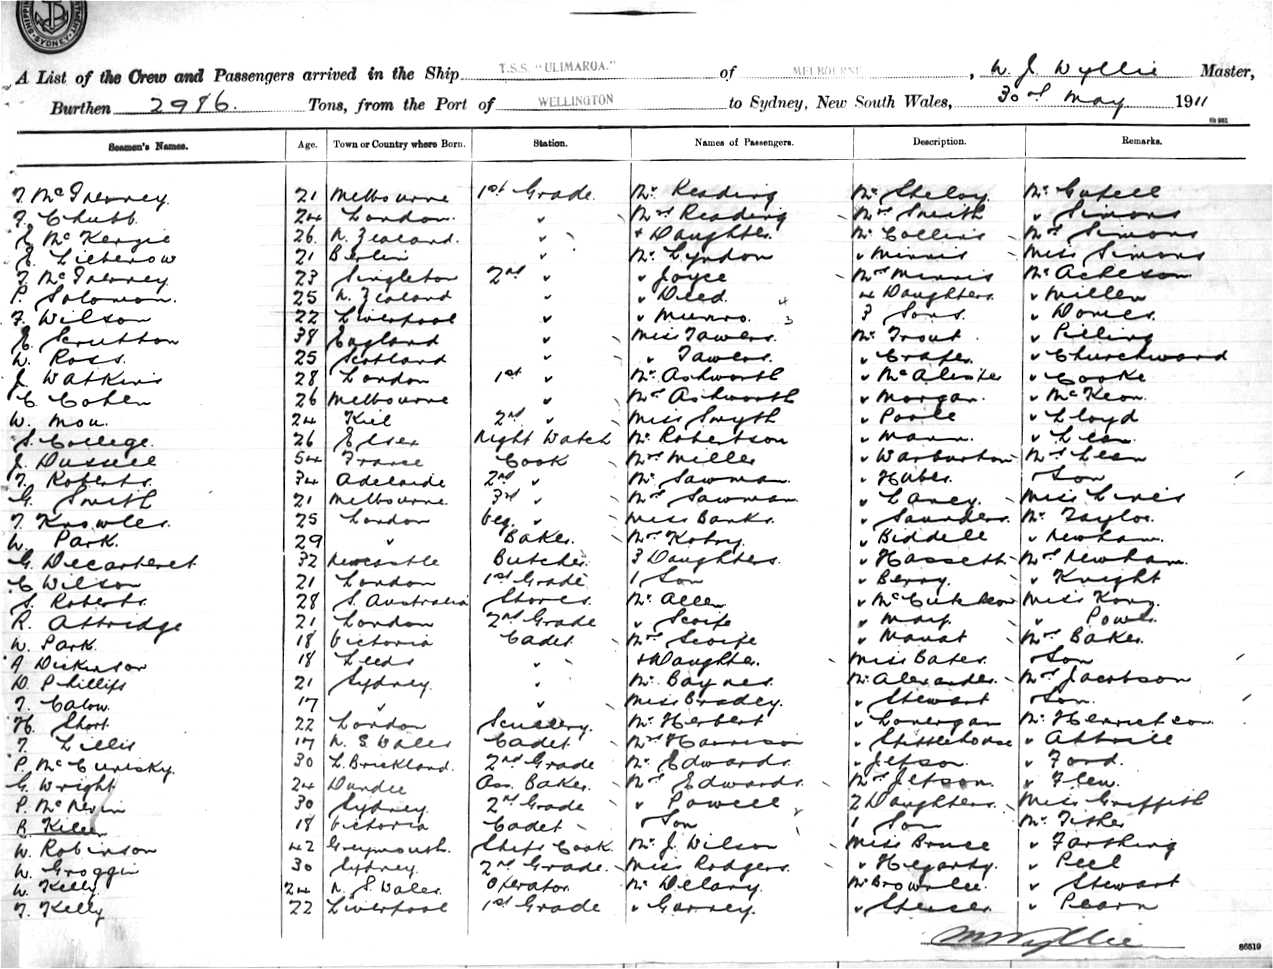 SYDNEY
A List of the Crew and Passengers arrived in the Ship T.S.S. "ULIMAROA." of MELBOURNE, W. J. Wyllie Master,
Burthen 2986. Tons, from the Port of WELLINGTON to Sydney, New South Wales, 30th May 1911
Seamen's Names. Age. Town or Country where Born. Station. Names of Passengers. Description. Remarks.
21 Melbourne 1st Grade Mr Reading Mr
T. Chubb 24 London. " Mrs Reading Mrs Smith " Simons
McKenzie 26 N. Zealand. " + Daughter. Mr Collins Mrs Simons
21 Berlin " Mr Lyndon " Minnis Miss Simons
23 Singleton 2nd " " Joyce Mrs Minnis Mr Acheson
P. Solomon. 25 N. Zealand " " Deed. 4 Daughters. " Miller
F. Wilson 22 Liverpool " " Munro. 3 Sons. " Davies
Scrutton 38 England " Miss Tawers. Mr Trout " Pilling
W. Ross. 25 Scotland " " Tawers. " " Churchward
J. Watkins 28 London 1st " Mr Ashworth " McAlister " Cooke
C. Cohen 26 Melbourne " Mrs Ashworth " Morgan. " McKeon.
W. Mou. 24 Kiel 2nd " Miss Smyth " Poole " Lloyd
S. College. 26 Essex Night Watch Mr Robertson " Mann. " Lean
J. Dussell 54 France Cook Mrs Miller " Warburton Mrs Lean
T. Roberts. 34 Adelaide 2nd " Mr Sawman. " Son
G. Smith 21 Melbourne 3rd " Mrs Sawman " Laney. Miss
T. Knowles. 25 London Veg. " Miss Banks. " Saunders. Mr Taylor.
W. Park. 29 " Baker. Mrs " Biddell " Newham.
G. Decarteret 32 Newcastle Butcher 3 Daughters. " Hassett Mrs Newham.
C Wilson 21 London 1st Grade 1 Son " Berry. " Knight
S. Roberts. 28 S. Australia Stores. Mr Allen " McCutcheon Miss
R. Attridge 21 London 2nd Grade " Scoife " " Power
W. Park. 18 Victoria Cadet " Mrs Scoife " Mrs Baker.
A Dickinson 18 Leeds " + Daughter. Miss Bates. Son
D. Phillips 21 Sydney. " Mr Baynes. Mr Alexander. Mrs Jacobson
T. Calow. 17 " " Miss Bradey. " Stewart Son.
H. Short. 22 London Scullery. Mr Herbert " Lonergan Mr
T. Lillis 17 N. S Wales Cadet Mrs Harrison " Stittlehouse " Attrill
P. McCurisky. 30 2nd Grade Mr Edwards. " Jepson. " Ford.
G. Wright 24 Dundee Ass. Baker. Mrs Edwards. Mrs Jepson. " Flew.
P. 30 Sydney 2nd Grade " Powell 2 Daughters. Miss Griffith
18 Victoria Cadet Son 1 Son Mr
W. Robinson 42 Greymouth. Ships Cook Mr J. Wilson Miss Bruce " Farthing
W. Groggin 30 Sydney 2nd Grade. Miss Rodgers. " Hegarty. " Peel
W. Kelly. 24 N. S Wales. Operator. Mr Delany. Mr Brownlee. " Stewart
T. Kelly 22 Liverpool 1st Grade " Garvey. " Spencer " Pearn
W J Wyllie
86519